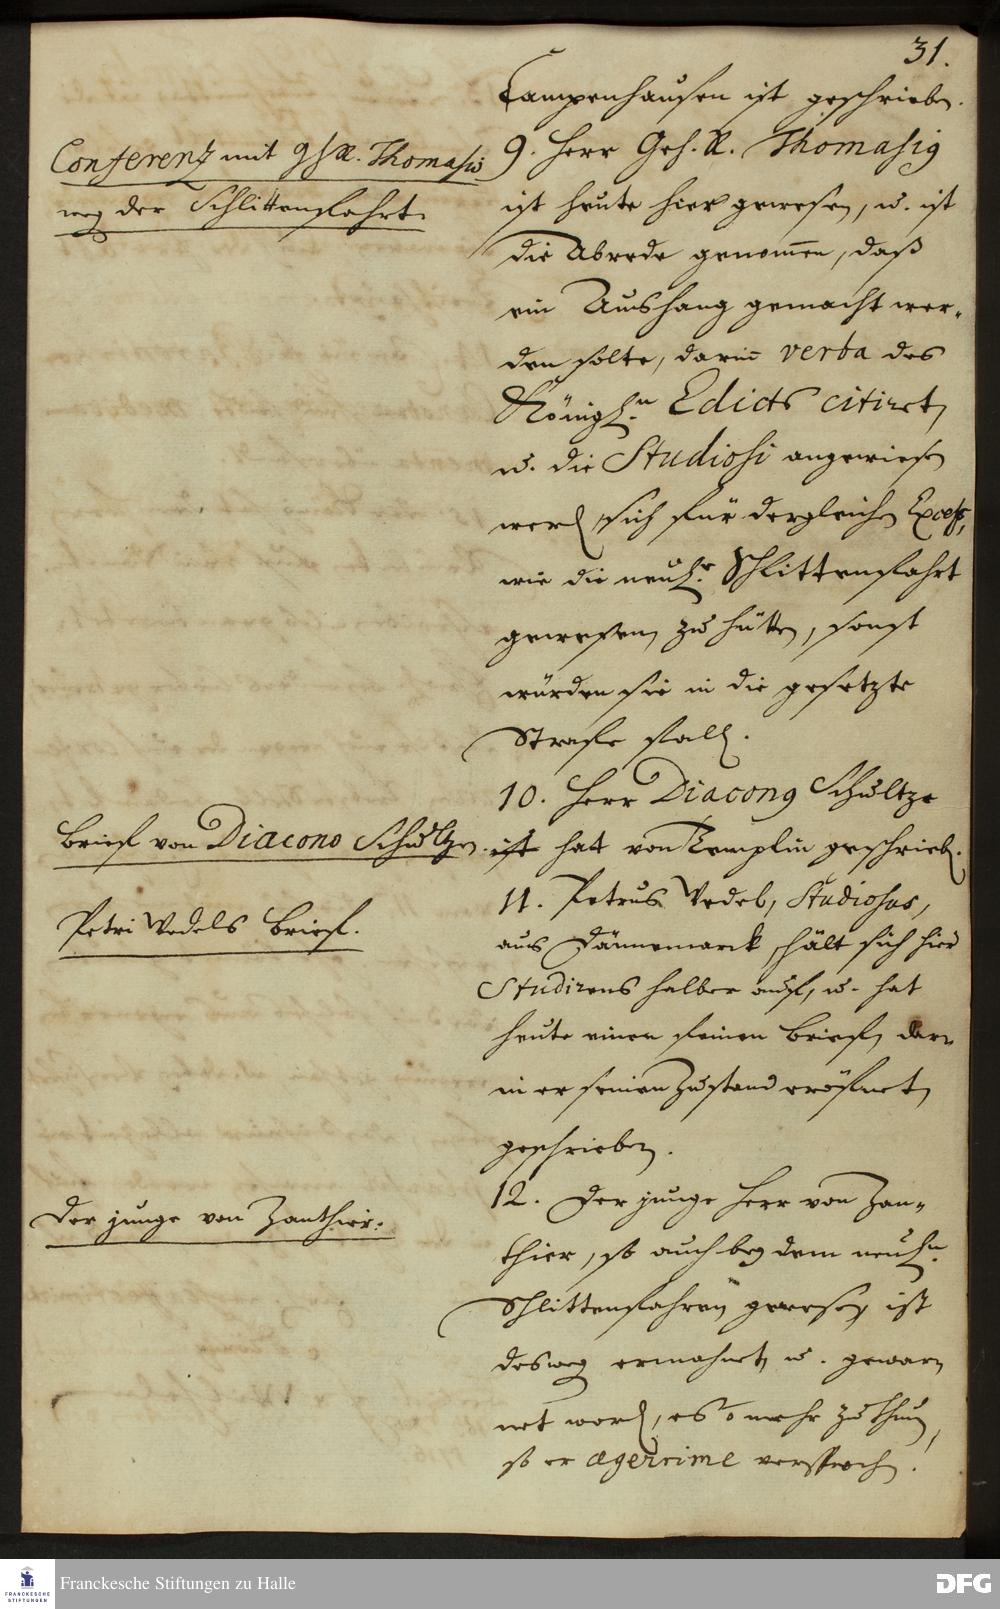 31.
Campenhausen ist geschrieben.
Conferentz mit GhR. Thomasio
weg der Schlittenfahrt.
9. Herr Geh. R. Thomasig
ist heute hier gewesen, u. ist
die Abrede genom̅en, daß
ein Aushang gemacht wer-
den solte, darin̅ verba des
Königln. Edicts citiret,
u. die Studiosi angewiesen
werd sich für dergleichen Excess,
wie die neulr. Schlittenfahrt
gewesen, zu hütten, sonst
würden sie in die gesetzte
Strafe fall.
Brief von Diacono Schultzen.
10. Herr Diacong Schultze
ist hat von Templin geschrieb.
Petri Vedels Brief.
11. Petrus Vedel, Studiosus,
aus Dännemarck, hält sich hier
Studirens halber auf, u. hat
heute einen feinen Brief, dar-
in er seinen Zustand eröfnet,
geschrieben.
Der junge von Zanthier.
12. Der junge Herr von Zan-
thier, so auch bey dem neuln.
Schlittenfahren gewesen, ist
desweg ermahnet, u. gewar-
net word, es o mehr zu thun,
so er aegerrime versproch.
Franckesche Stiftungen zu Halle
FRANCKESCHE
STIFTUNGEN
DFG